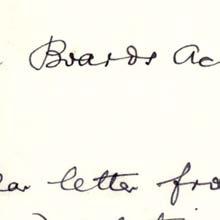 Boards Ac
ar letter fro